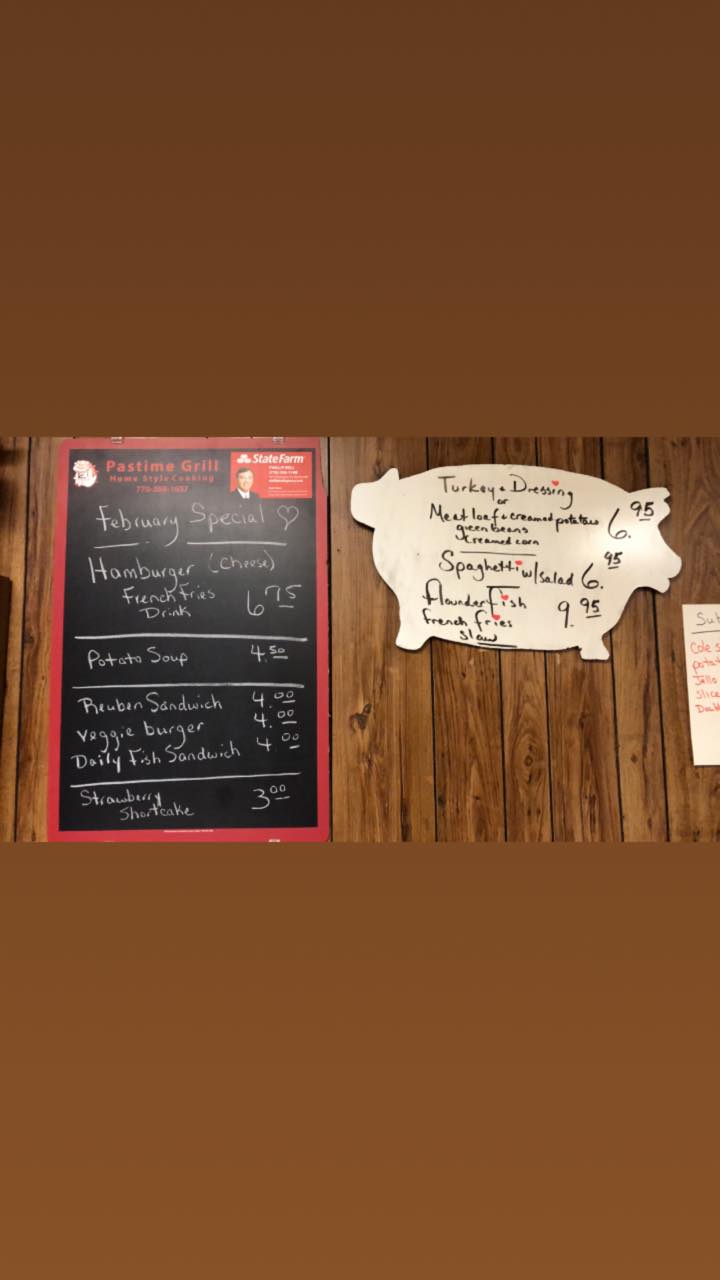 Pastime Grill
Home Style Cooking
StateFarm
February Special ♡
Hamburger (Cheese)
French Fries
Drink
6 75
Potato Soup 4.50
Reuben Sandwich 4.00
Veggie burger 4.00
Daily Fish Sandwich 4 00
Strawberry
Shortcake 3 00
Turkey & Dressing
or
Meat loaf & creamed potatoes
green beans
creamed corn
6.95
Spaghetti w/salad 6.95
flounder fish
french fries
slaw
9.95
Cole